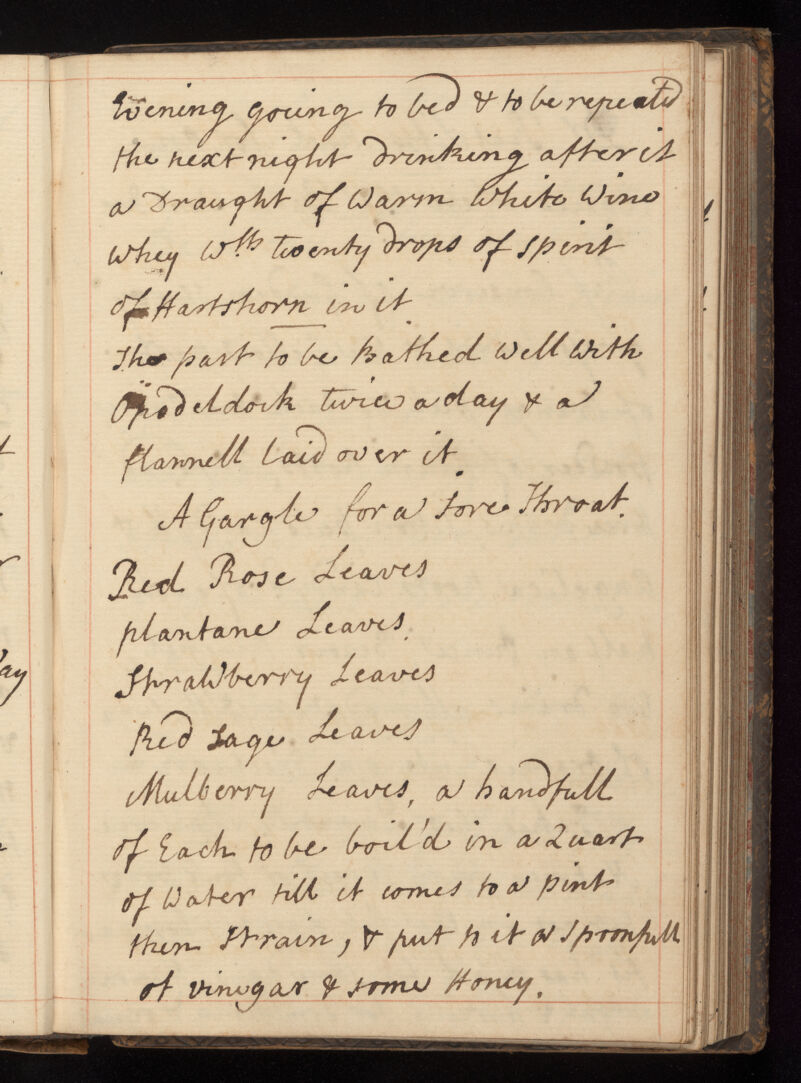 Evening going to bed & to be repeated
the next night drinking after it
a Draught of Warm White Wine
Whey Wth twenty drops of Spirit
of Hartshorn in it
The part to be Bathed Well With
Opodeldock twice a day & a
flannell laid over it
A Gargle for a Sore Throat.
Red Rose Leaves
plantane Leaves
Strawberry Leaves
Red Sage Leaves
Mulberry Leaves, a handfull
of Each to be boil'd in a Quart
of Water till it comes to a pint
then Strain, & put to it a Spoonfull
of vinegar & some Honey.